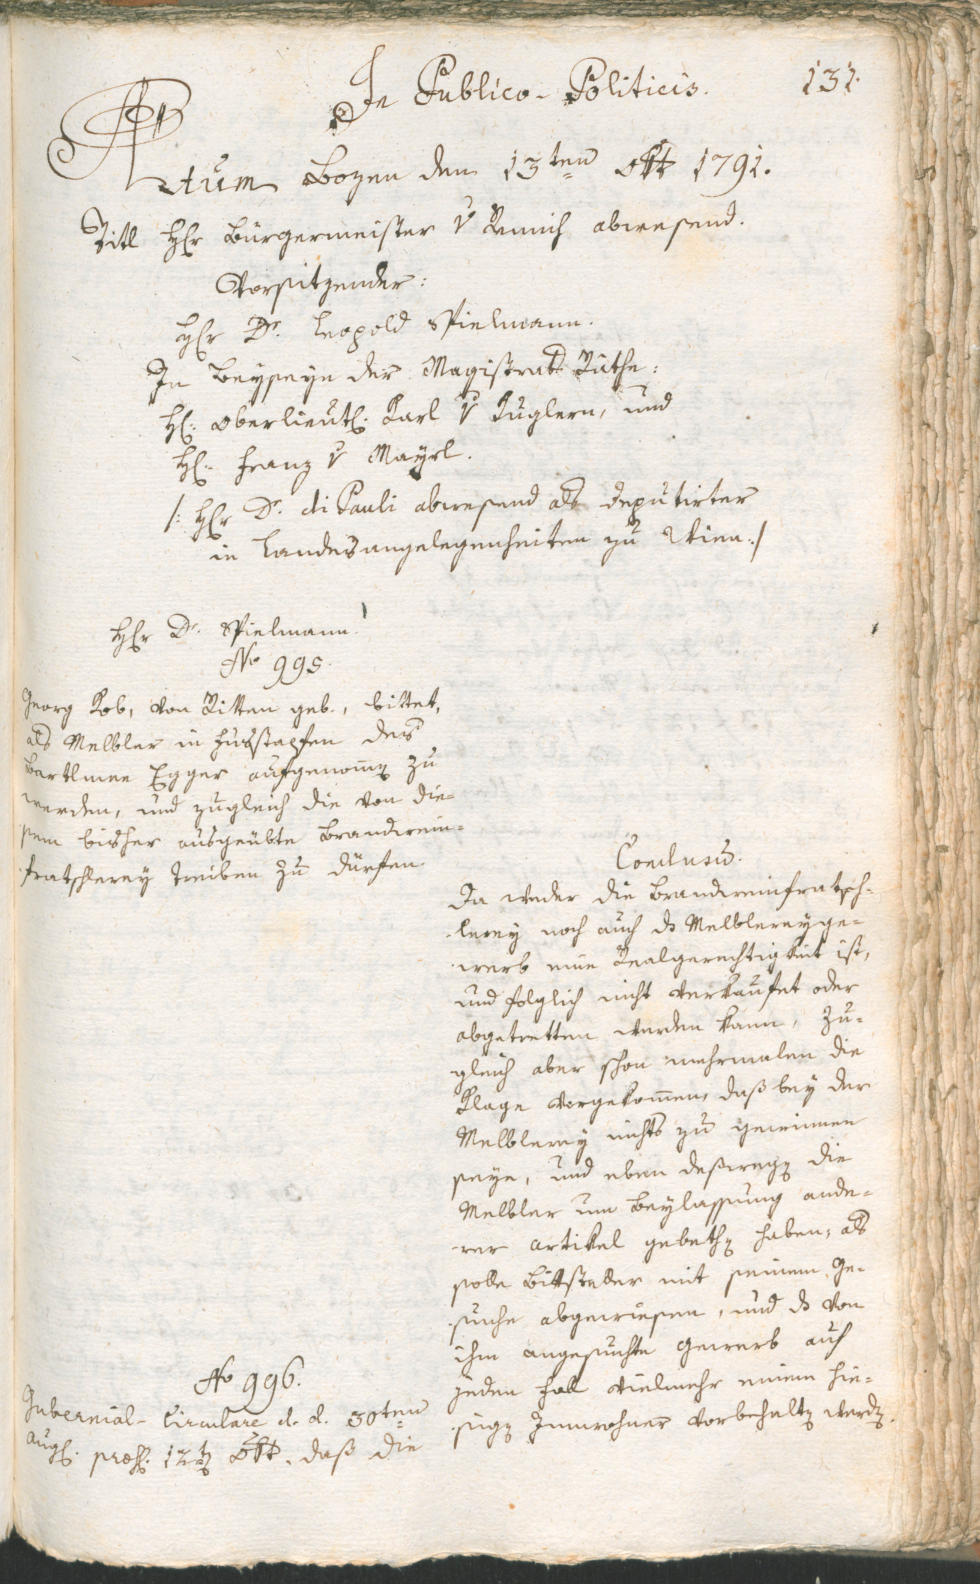 In Publico-Politicis.
131.
Actum Bozen den 13ten 8br 1791.
Titl Herr Bürgermeister v Remich abwesend.
Vorsitzender:
Herr Dr. Leopold Spielmann.
In Beyseyn der Magistrats Räthe:
H: Oberlieut: Karl v Kuglern, und
H: Franz v Mayrl.
/: Herr Dr. di Pauli abwesend als deputirter
in Landesangelegenheiten zu Wien :/
Herr Dr. Spielmann.
No 995.
Georg Rob, von Ritten geb., bittet,
als Melbler in Fusstapfen des
Bartlmee Egger aufgenomen zu
werden, und zugleich die von die-
sem bisher ausgeübte Brandwein-
fratschlerey treiben zu dürfen.
Conclusum.
Da weder die Brandweinfratsch-
lerey noch auch das Melblereyge-
werb eine Realgerechtigkeit ist,
und folglich nicht verkaufet oder
abgetretten werden kann, zu-
gleich aber schon mehrmalen die
Klage vorgekomen, daß bey der
Melblerey nichts zu gewinnen
seye, und eben deßwegen die
Melbler um Beylassung ande-
rer Artikel gebethen haben, als
solle Bittsteller mit seinem Ge-
suche abgewiesen, und das von
ihm angesuchte Gewerb auf
jeden Fall vielmehr einem hie-
sigen Innwohner vorbehalten werden.
No 996.
Gubernial-Circulare d. d. 30ten
Aug: præs: 12ten 8br. daß die